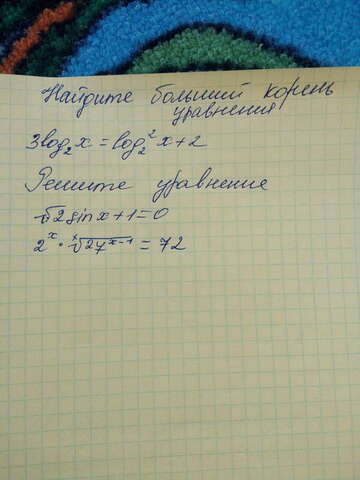 Найдите больший корень
уравнения
3log₂x = log₂²x+2
Решите уравнение
√2sinx+1=0
2ˣ · ˣ√27ˣ⁻¹ = 72